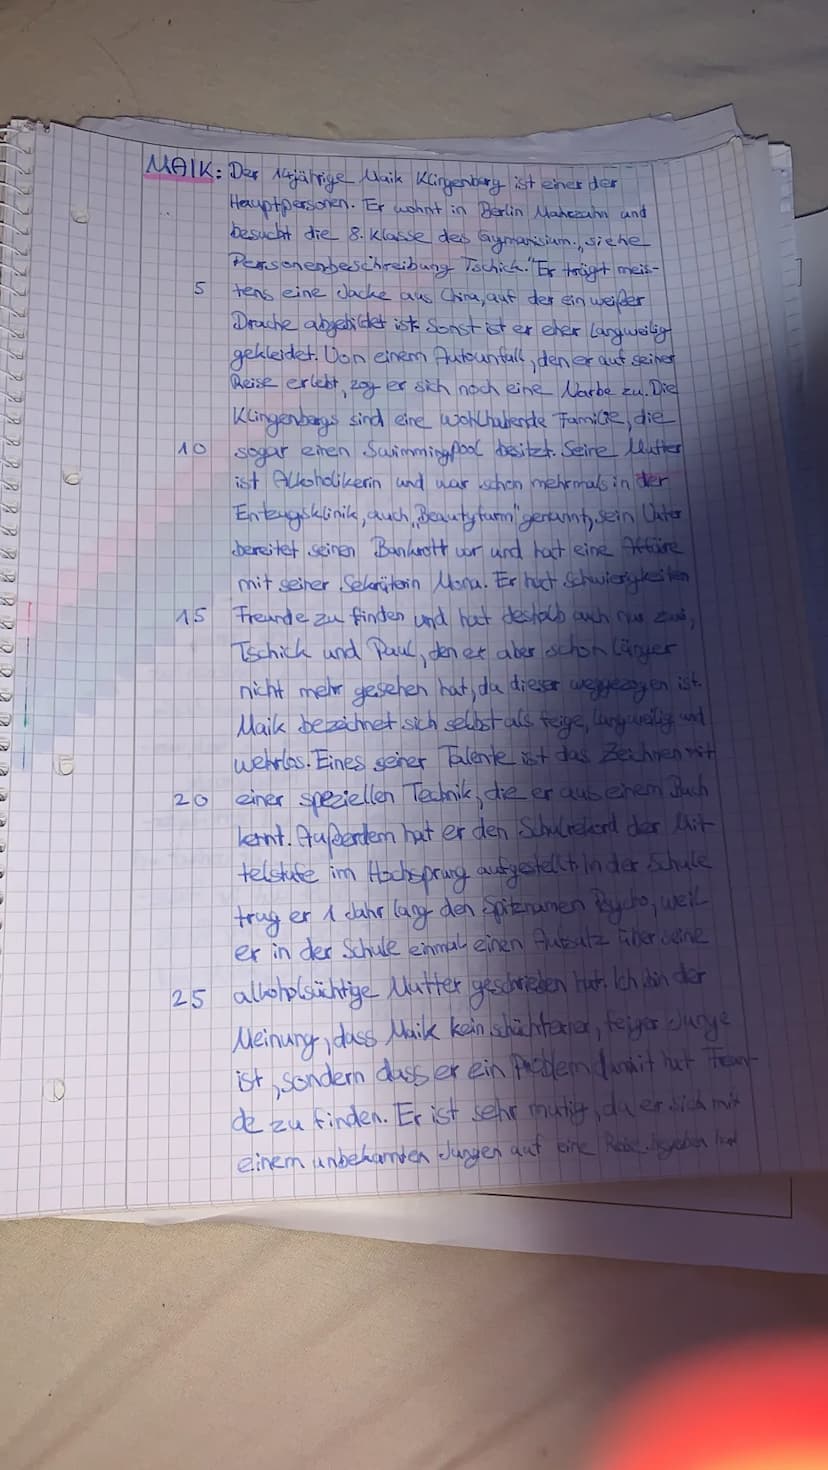 MAIK: Der 14jährige Maik Klingenberg ist einer der
Hauptpersonen. Er wohnt in Berlin Mahrzahn und
besucht die 8. Klasse des Gymansium. „siehe
Personenbeschreibung Tschick." Er trägt meis-
5 tens eine Jacke aus China, auf der ein weißer
Drache abgebildet ist. Sonst ist er eher langweilig
gekleidet. Von einem Autounfall, den er auf seiner
Reise erlebt, zog er sich noch eine Narbe zu. Die
Klingenbergs sind eine wohlhabende Familie, die
10 sogar einen Swimmingpool besitzt. Seine Mutter
ist Alkoholikerin und war schon mehrmals in der
Entzugsklinik, auch „Beautyfarm" genannt, sein Vater
bereitet seinen Bankrott vor und hat eine Affäre
mit seiner Sekretärin Mona. Er hat Schwierigkeiten
15 Freunde zu finden und hat deshalb auch nur zwei,
Tschick und Paul, den er aber schon länger
nicht mehr gesehen hat, da dieser weggezogen ist.
Maik bezeichnet sich selbst als feige, langweilig und
wehrlos. Eines seiner Talente ist das Zeichnen mit
20 einer speziellen Technik, die er aus einem Buch
lernt. Außerdem hat er den Schulrekord der Mit-
telstufe im Hochsprung aufgestellt. In der Schule
trug er 1 Jahr lang den Spitznamen Psycho, weil
er in der Schule einmal einen Aufsatz über seine
25 alkoholsüchtige Mutter geschrieben hat. Ich bin der
Meinung, dass Maik kein schüchterner, feiger Junge
ist, sondern dass er ein Problem damit hat Freun-
de zu finden. Er ist sehr mutig, da er sich mit
einem unbekannten Jungen auf eine Reise begeben hat